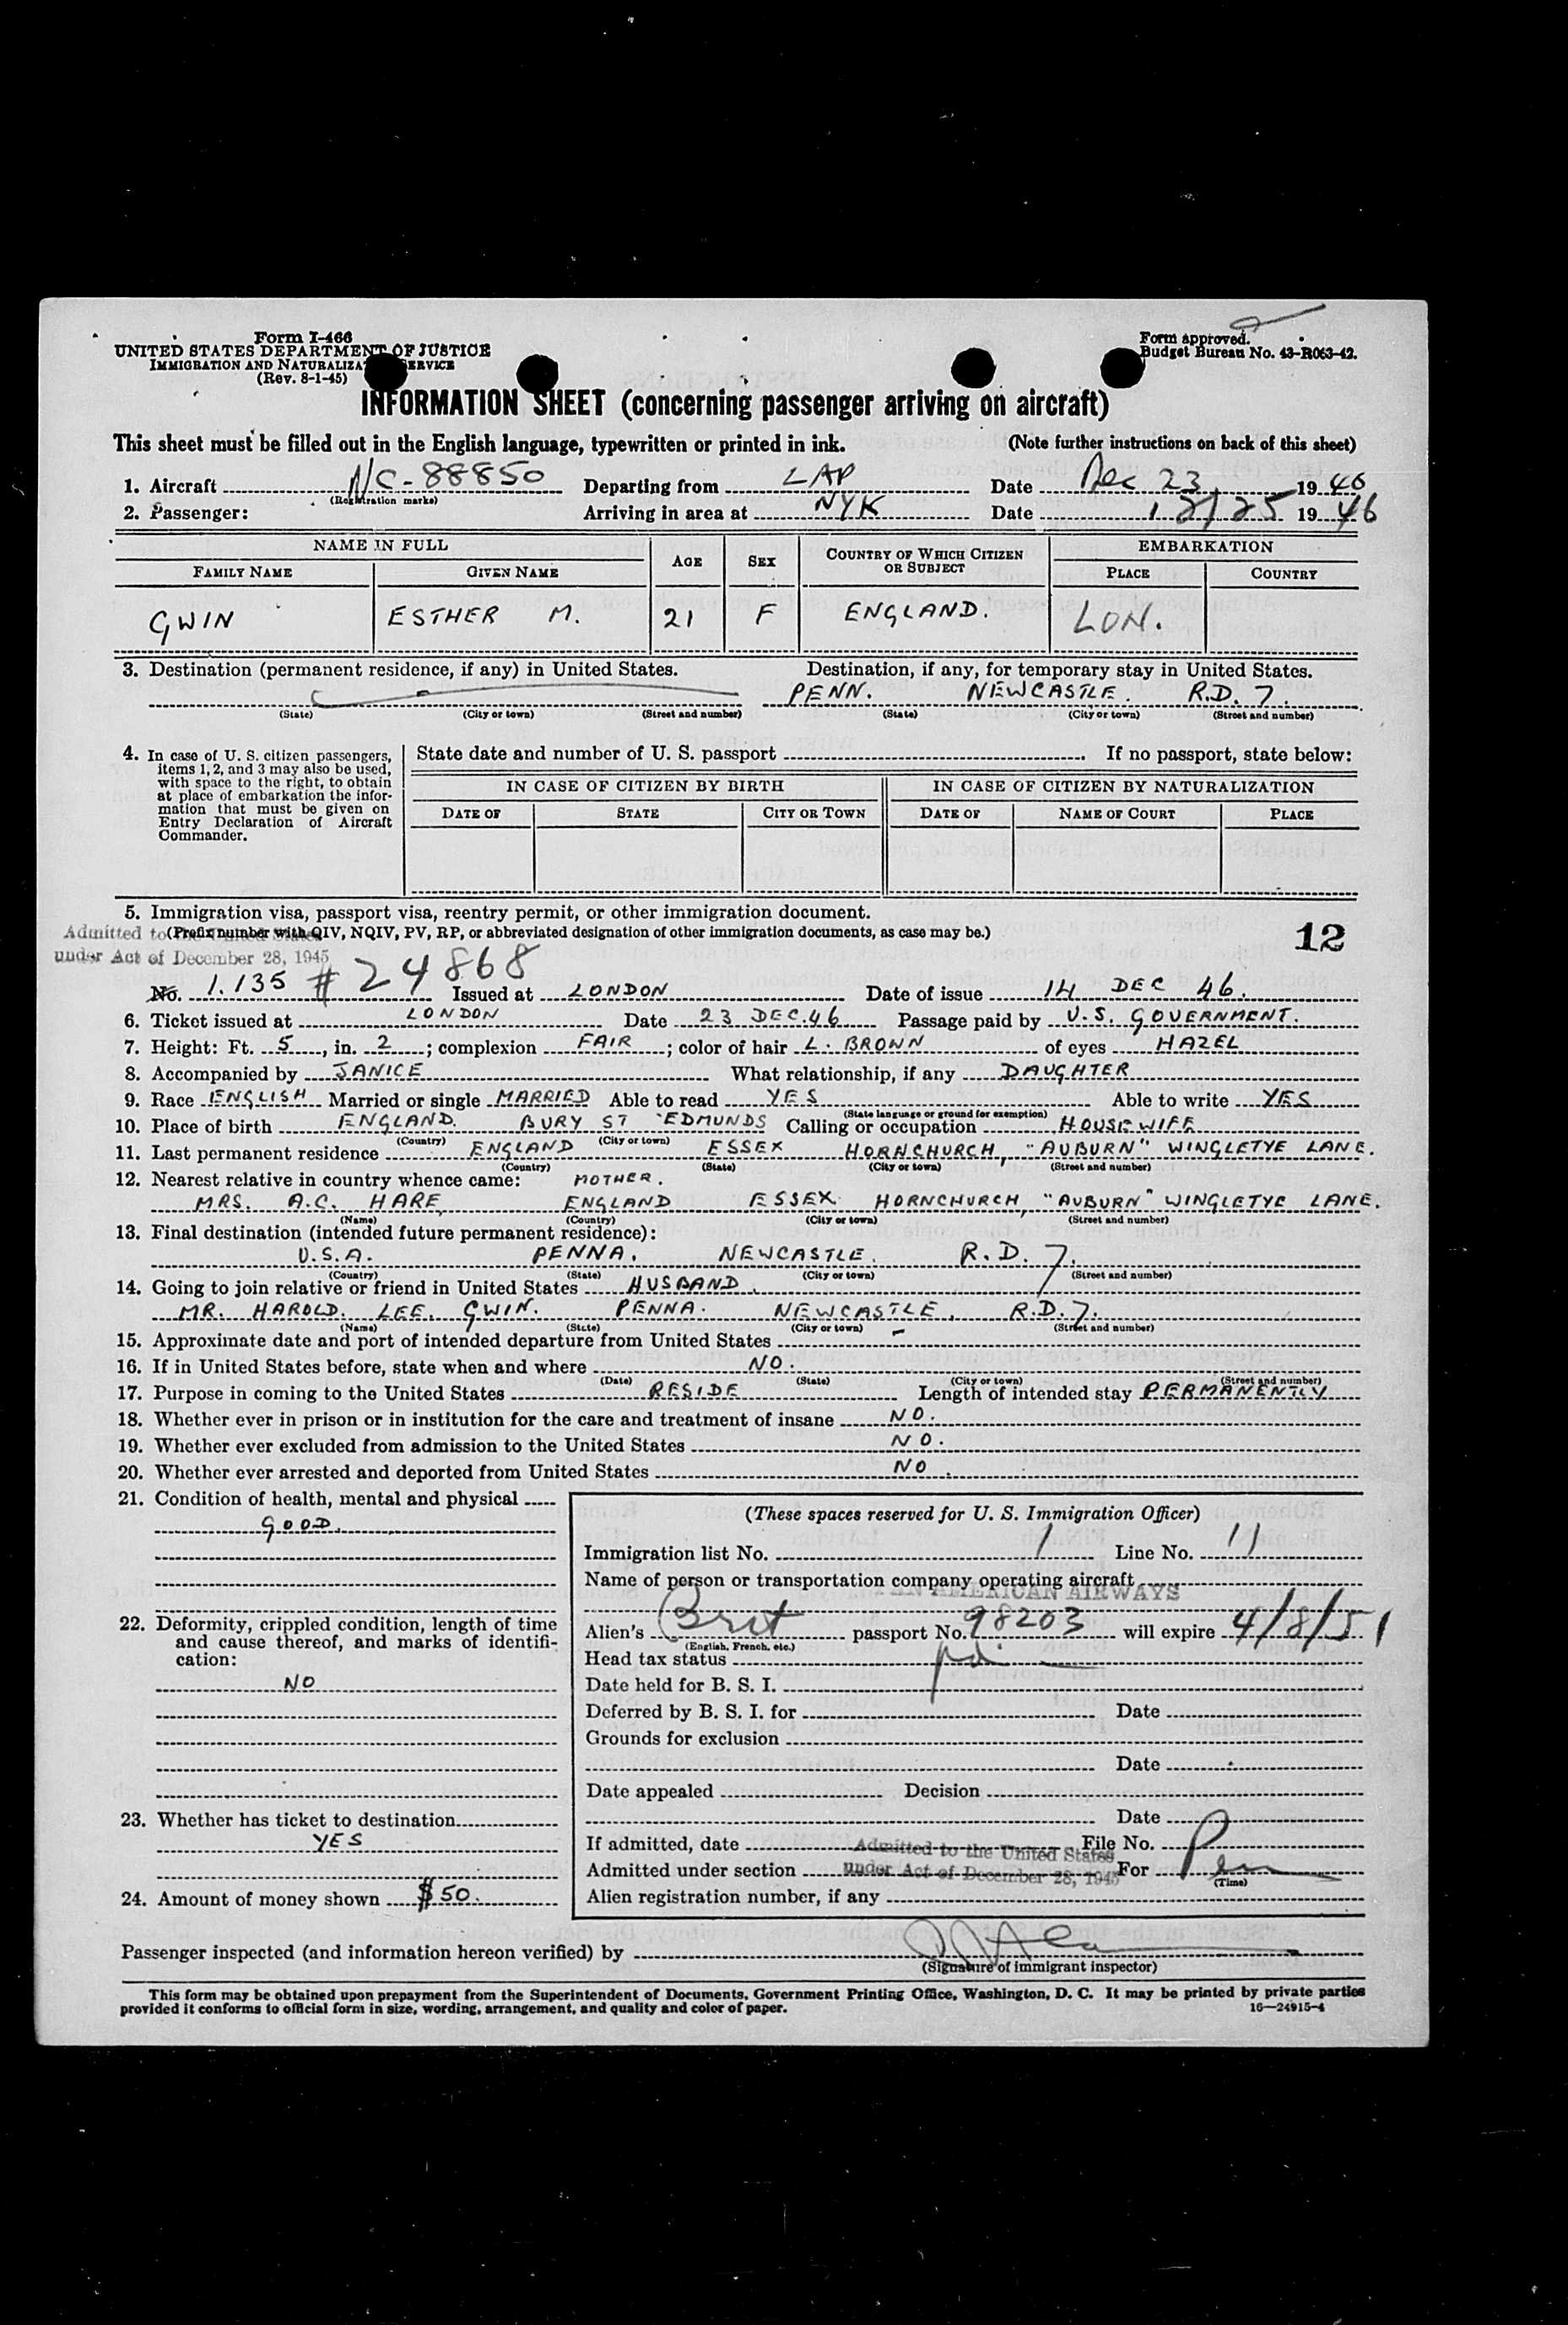 Form I-466
UNITED STATES DEPARTMENT OF JUSTICE
IMMIGRATION AND NATURALIZATION SERVICE
(Rev. 8-1-45)
Form approved.
Budget Bureau No. 43-R063-42.
INFORMATION SHEET (concerning passenger arriving on aircraft)
This sheet must be filled out in the English language, typewritten or printed in ink. (Note further instructions on back of this sheet)
1. Aircraft NC-88850 Departing from LAP Date Dec 23, 1946
(Registration marks)
2. Passenger: Arriving in area at NYK Date 12/25 1946
NAME IN FULL AGE SEX COUNTRY OF WHICH CITIZEN OR SUBJECT EMBARKATION
FAMILY NAME GIVEN NAME PLACE COUNTRY
GWIN ESTHER M. 21 F ENGLAND. LON.
3. Destination (permanent residence, if any) in United States. Destination, if any, for temporary stay in United States.
PENN. NEWCASTLE. R.D. 7.
(State) (City or town) (Street and number) (State) (City or town) (Street and number)
4. In case of U. S. citizen passengers,
items 1, 2, and 3 may also be used,
with space to the right, to obtain
at place of embarkation the infor-
mation that must be given on
Entry Declaration of Aircraft
Commander.
State date and number of U. S. passport . If no passport, state below:
IN CASE OF CITIZEN BY BIRTH IN CASE OF CITIZEN BY NATURALIZATION
DATE OF STATE CITY OR TOWN DATE OF NAME OF COURT PLACE
5. Immigration visa, passport visa, reentry permit, or other immigration document.
(Prefix number with QIV, NQIV, PV, RP, or abbreviated designation of other immigration documents, as case may be.) 12
Admitted to the United States
under Act of December 28, 1945
No. 1.135 #24868 Issued at LONDON Date of issue 14 DEC 46.
6. Ticket issued at LONDON Date 23 DEC.46 Passage paid by U.S. GOVERNMENT.
7. Height: Ft. 5, in. 2; complexion FAIR; color of hair L. BROWN of eyes HAZEL
8. Accompanied by JANICE What relationship, if any DAUGHTER
9. Race ENGLISH Married or single MARRIED Able to read YES Able to write YES
(State language or ground for exemption)
10. Place of birth ENGLAND. BURY ST EDMUNDS Calling or occupation HOUSEWIFE
(Country) (City or town)
11. Last permanent residence ENGLAND ESSEX HORNCHURCH, "AUBURN" WINGLETYE LANE.
(Country) (State) (City or town) (Street and number)
12. Nearest relative in country whence came: MOTHER.
MRS. A.C. HARE, ENGLAND ESSEX HORNCHURCH, "AUBURN" WINGLETYE LANE.
(Name) (Country) (City or town) (Street and number)
13. Final destination (intended future permanent residence):
U.S.A. PENNA. NEWCASTLE. R.D. 7.
(Country) (State) (City or town) (Street and number)
14. Going to join relative or friend in United States HUSBAND.
MR. HAROLD. LEE. GWIN. PENNA. NEWCASTLE, R.D.7.
(Name) (State) (City or town) (Street and number)
15. Approximate date and port of intended departure from United States –
16. If in United States before, state when and where NO.
(Date) (State) (City or town) (Street and number)
17. Purpose in coming to the United States RESIDE Length of intended stay PERMANENTLY
18. Whether ever in prison or in institution for the care and treatment of insane NO.
19. Whether ever excluded from admission to the United States NO.
20. Whether ever arrested and deported from United States NO.
21. Condition of health, mental and physical
GOOD.
22. Deformity, crippled condition, length of time
and cause thereof, and marks of identifi-
cation:
NO
23. Whether has ticket to destination
YES
24. Amount of money shown $50.
(These spaces reserved for U. S. Immigration Officer)
Immigration list No. 1 Line No. 11
Name of person or transportation company operating aircraft
PAN AMERICAN AIRWAYS
Alien's Brit passport No. 98203 will expire 4/8/51
(English, French, etc.)
Head tax status pd
Date held for B. S. I.
Deferred by B. S. I. for Date
Grounds for exclusion
Date
Date appealed Decision
Date
If admitted, date Admitted to the United States File No. P
Admitted under section under Act of December 28, 1945 For Per
(Time)
Alien registration number, if any
Passenger inspected (and information hereon verified) by
(Signature of immigrant inspector)
This form may be obtained upon prepayment from the Superintendent of Documents, Government Printing Office, Washington, D. C. It may be printed by private parties
provided it conforms to official form in size, wording, arrangement, and quality and color of paper. 16—24915-4